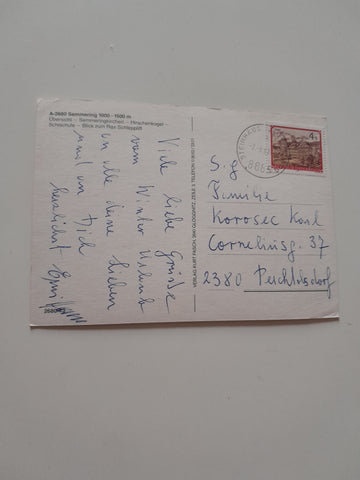 A-2680 Semmering 1000 - 1500 m
Übersicht - Semmeringkircherl - Hirschenkogel -
Schischule - Blick zum Rax-Schlepplift
Viele liebe Grüsse
vom Winter Urlaub
an alle deine Lieben
und an Dich
herzlichst
VERLAG KURT FASCH, 2640 GLOGGNITZ, ZEILE 3, TELEFON
STEINHAUS
8685
4
S. g.
Familie
Korosec Karl
Corneliusg. 37
2380 Perchtoldsdorf